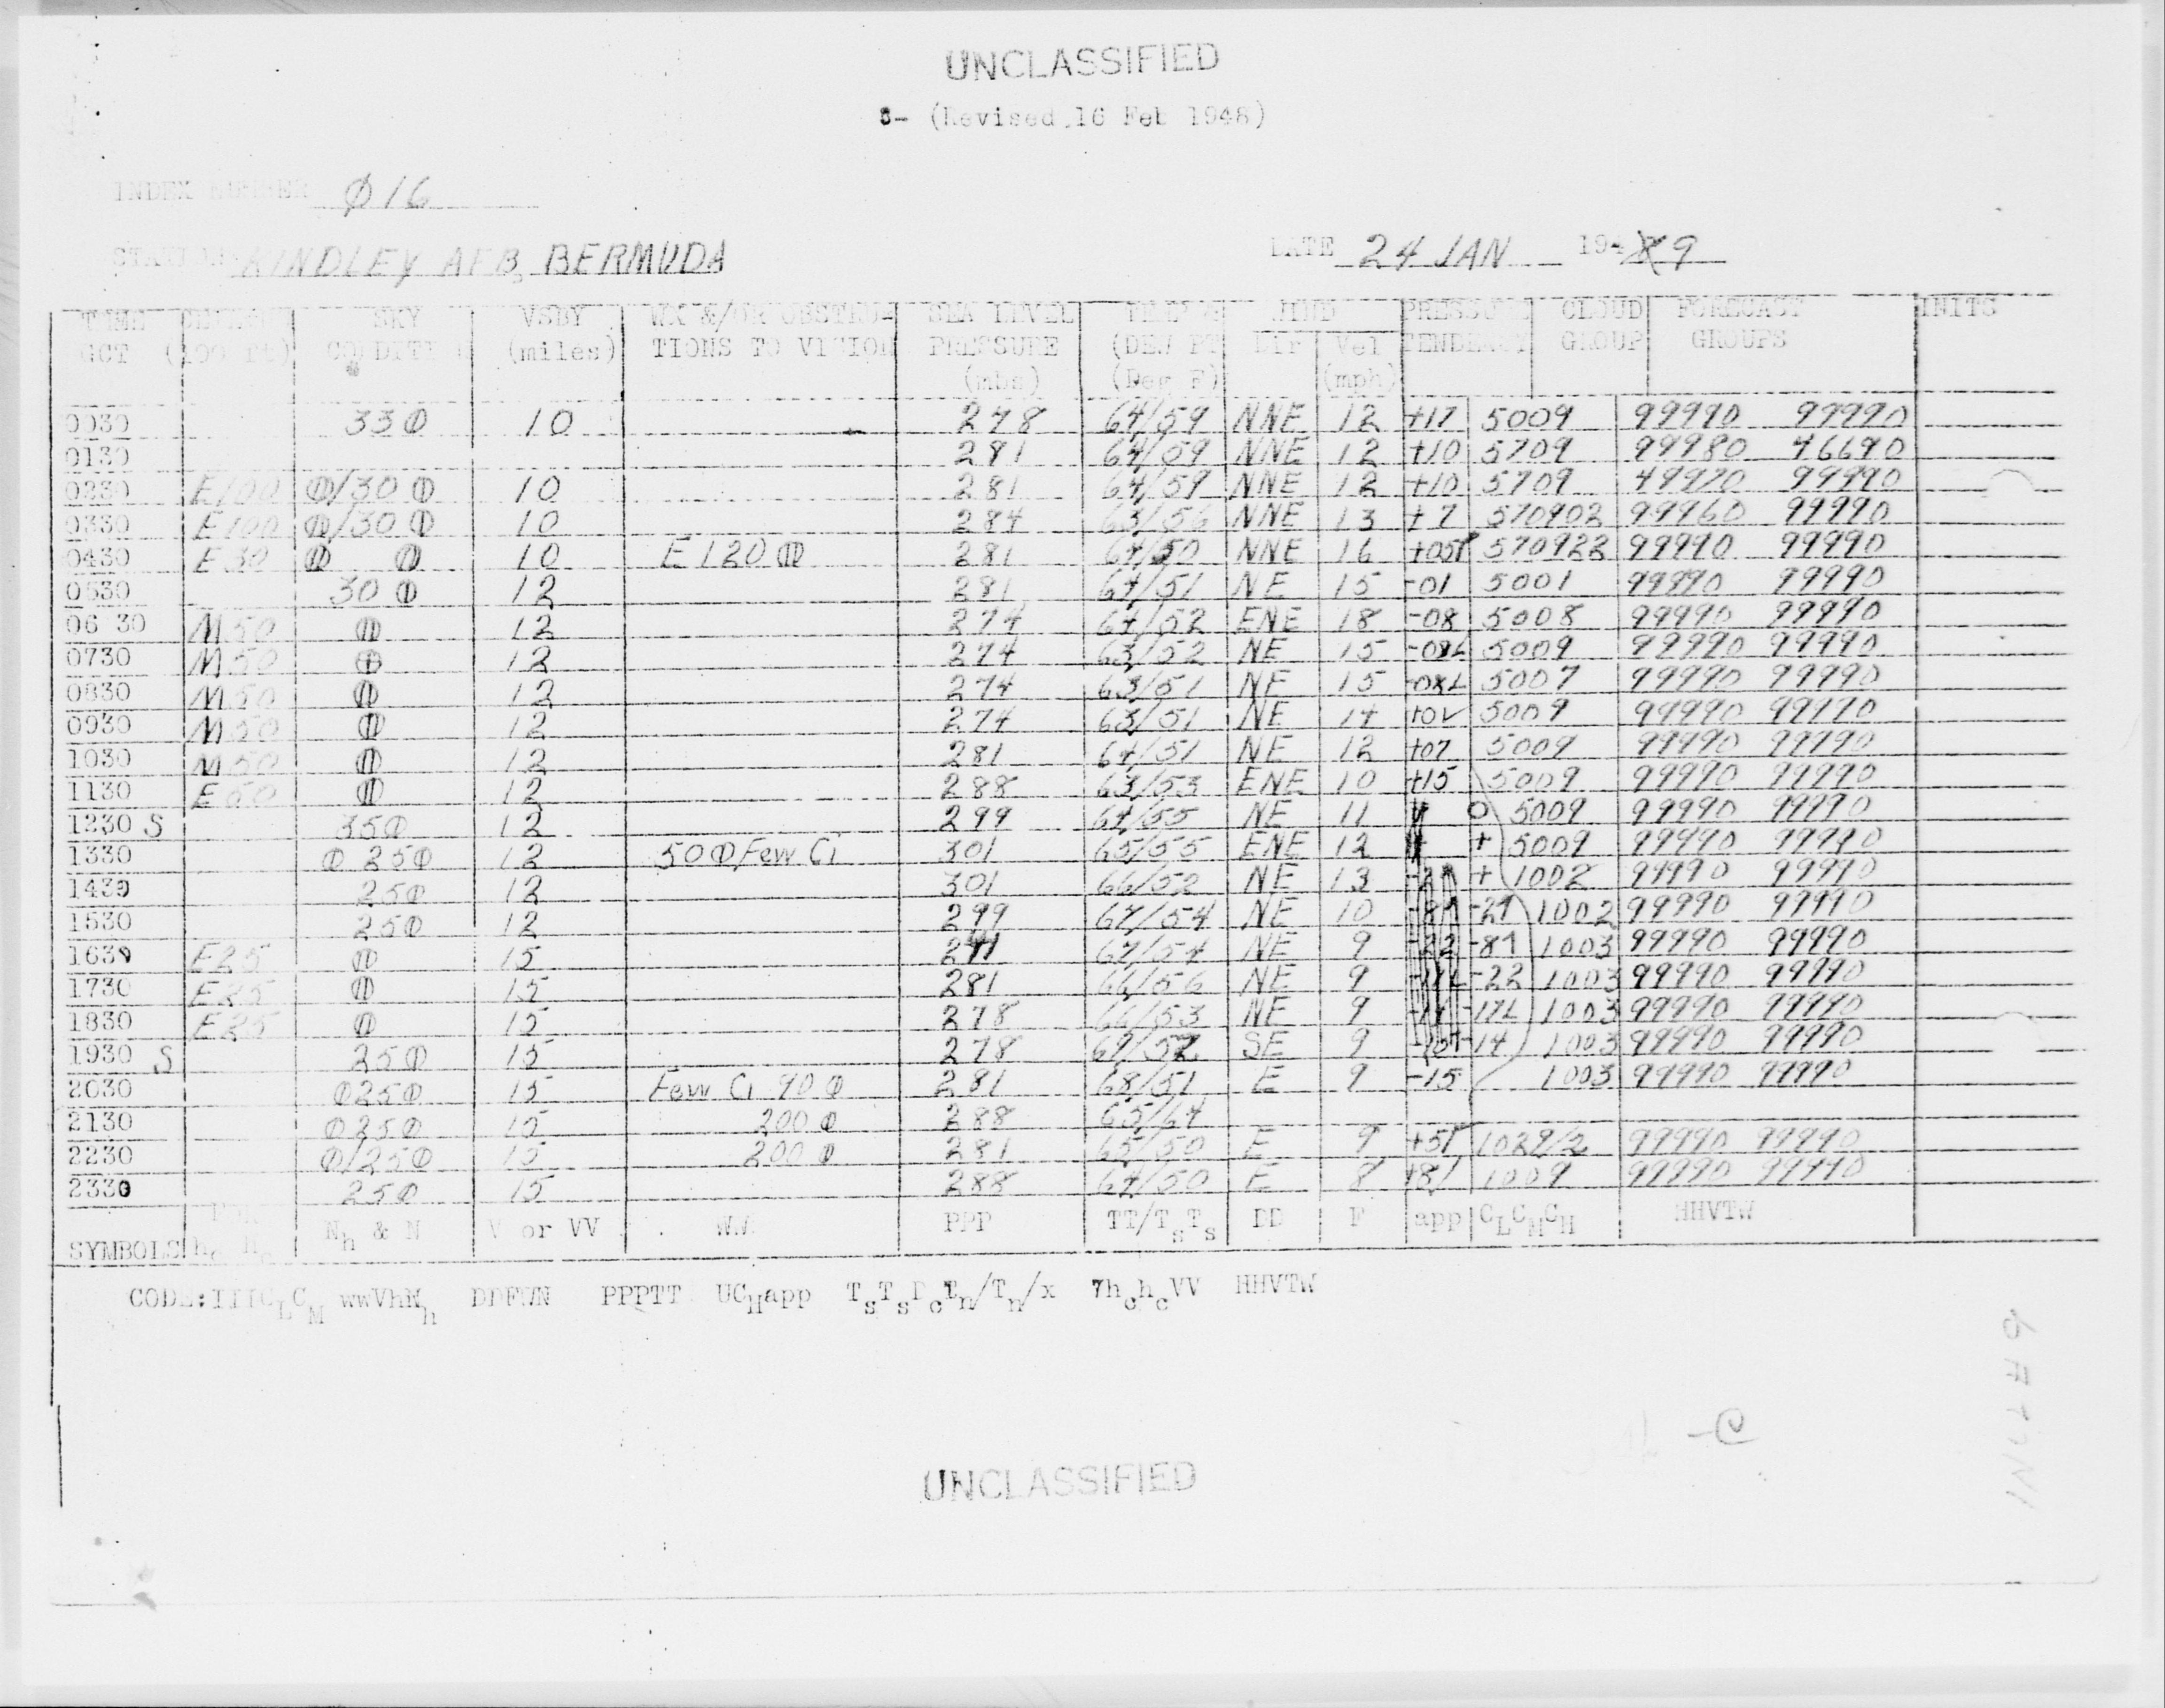 UNCLASSIFIED
8- (Revised 16 Feb 1948)
INDEX NUMBER Ø16
STATION KINDLEY AFB, BERMUDA DATE 24 JAN 1948 9
TIME SKY VSBY WX &/OR OBSTRUC- SEA LEVEL TEMP & WIND PRESSURE CLOUD FORECAST INITS
GCT (100 ft) CONDITION (miles) TIONS TO VISION PRESSURE (DEW PT Dir Vel TENDENCY GROUP GROUPS
(mbs) (Deg F) (mph)
0030 33 ⦶ 10 278 64/59 NNE 12 +17 5009 99990 99990
0130 281 64/59 NNE 12 +10 5709 99980 46690
0230 E100 ⦶/30 ⦶ 10 281 64/59 NNE 12 +10 5709 49970 99990
0330 E100 ⦶/30 ⦶ 10 284 63/56 NNE 13 +7 570902 99960 99990
0430 E30 ⦶ ⦶ 10 E120 ⦶ 281 64/50 NNE 16 570922 99990 99990
0530 30 ⦶ 12 281 64/51 NE 15 -01 5001 99990 99990
0630 M50 ⦶ 12 274 64/52 ENE 18 -08 5008 99990 99990
0730 M50 ⦶ 12 274 63/52 NE 15 5009 99990 99990
0830 M50 ⦶ 12 274 63/51 NE 15 5007 99990 99990
0930 M50 ⦶ 12 274 63/51 NE 14 5009 99990 99990
1030 M50 ⦶ 12 281 64/51 NE 12 +07 5009 99990 99990
1130 E50 ⦶ 12 288 63/53 ENE 10 +15 5009 99990 99990
1230 S 35 ⦶ 12 299 64/55 NE 11 0 5009 99990 99990
1330 ⦶ 25 ⦶ 12 50 ⦶ Few Ci 301 65/55 ENE 12 + 5009 99990 99990
1430 25 ⦶ 12 301 66/52 NE 13 + 1002 99990 99990
1530 25 ⦶ 12 299 67/54 NE 10 -29 1002 99990 99990
1630 E25 ⦶ 15 67/54 NE 9 -22 -89 1003 99990 99990
1730 E25 ⦶ 15 281 66/56 NE 9 -22 1003 99990 99990
1830 E25 ⦶ 15 278 66/53 NE 9 -17L 1003 99990 99990
1930 S 25 ⦶ 15 278 SE 9 -14 1003 99990 99990
2030 ⦶ 25 ⦶ 15 Few Ci 90 ⦶ 281 68/51 E 9 -15 1003 99990 99990
2130 ⦶ 25 ⦶ 15 200 ⦶ 288 65/64
2230 ⦶/25 ⦶ 15 200 ⦶ 281 65/50 E 9 99990 99990
2330 25 ⦶ 15 288 64/50 E 8 1009 99990 99990
SYMBOLS hc Hc Nh & N V or VV WW PPP TT/TsTs DD F app CLCMCH HHVTW
CODE:IIICLCM wwVhNh DDFWN PPPTT UCHapp 7hchcVV HHVTW
UNCLASSIFIED